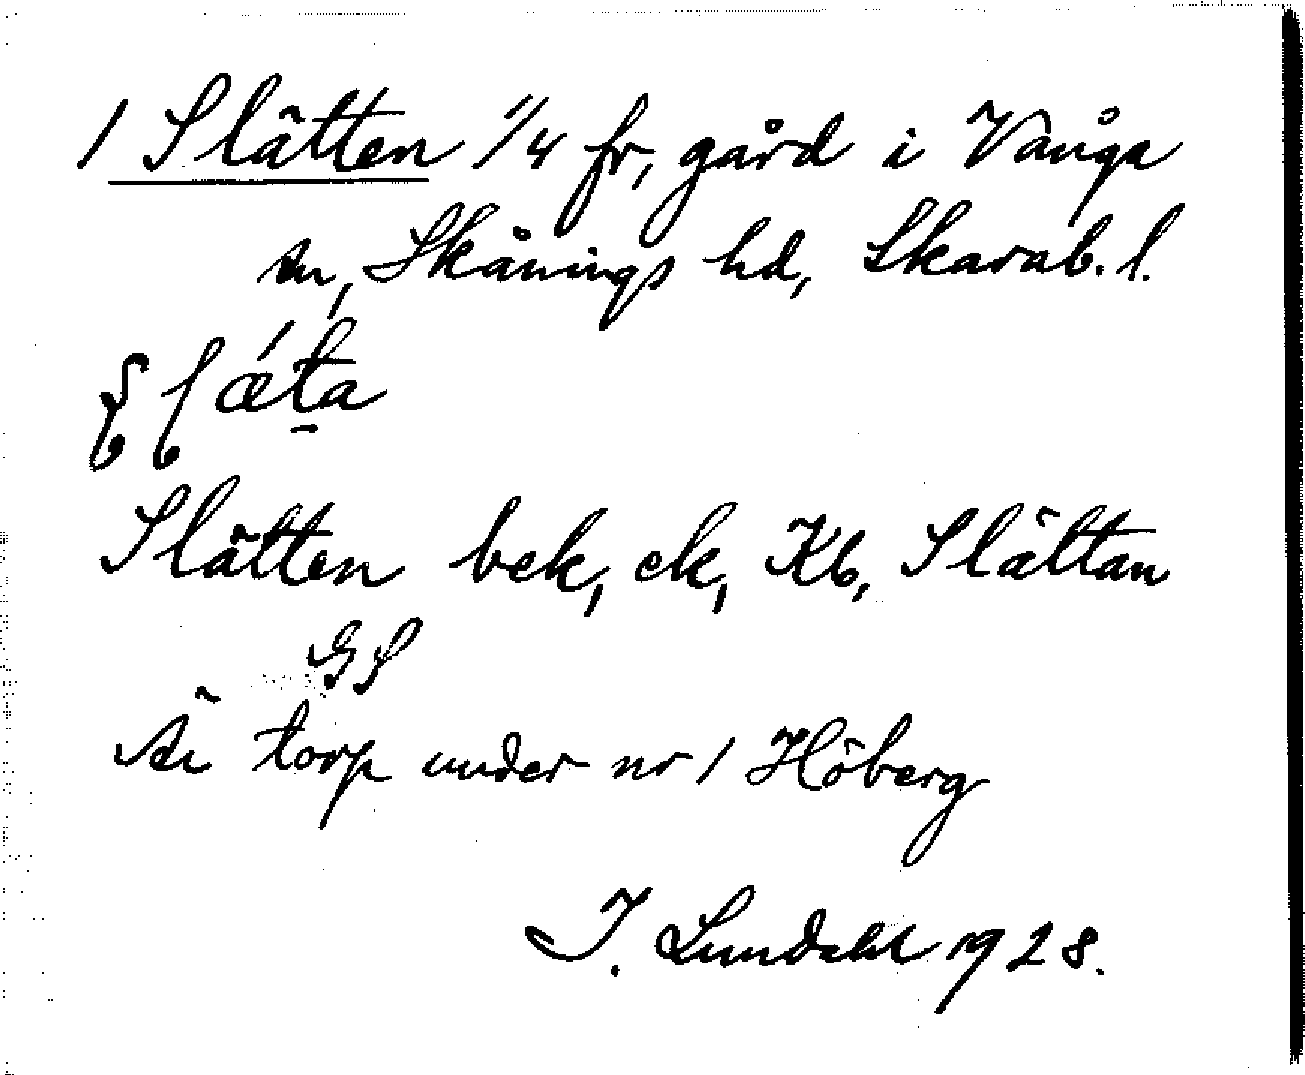 1 Slätten 1/4 fr, gård i Vånga
sn, Skånings hd, Skarab. l.
ʃlǽta
Slätten bek, ek, Kb, Slättan
GS
Är torp under nr 1 Höberg
I. Lundahl 1928.